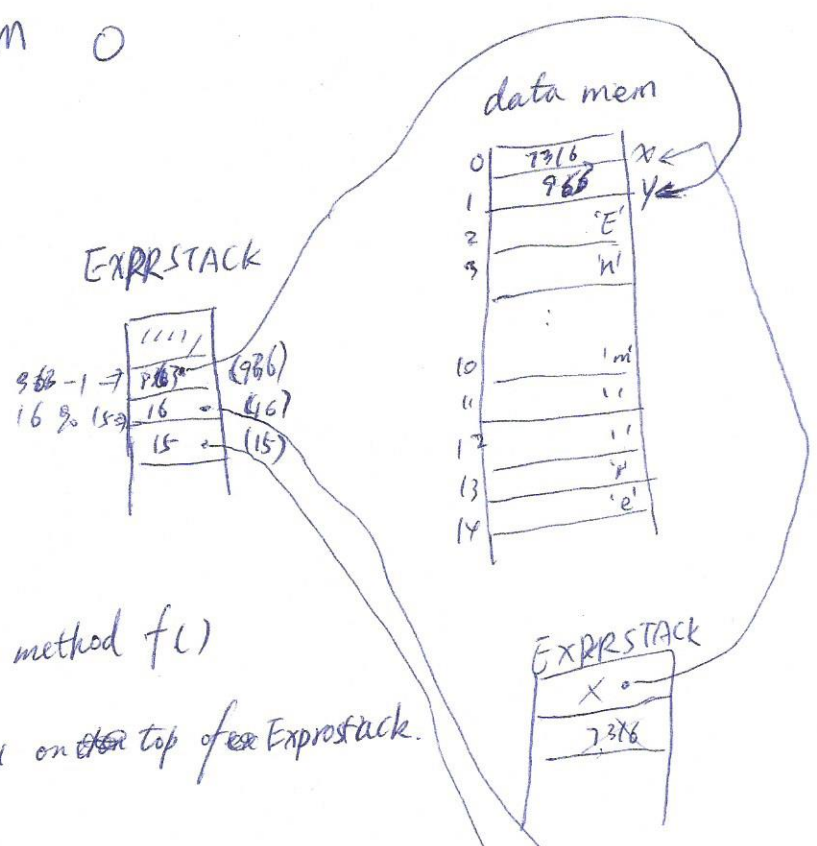 O
data mem
0 7316 x
1 y
2 'E'
3 'n'
:
10 'm'
11 ' '
12 ' '
13 'r'
14 'e'
EXPRSTACK
-1 →
16 % 15 → 16
15 (15)
method f()
on top of Exprostack.
EXPRSTACK
X
7316